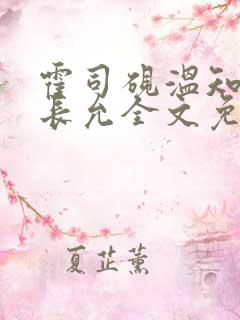 霍司砚温知
长允全文免
夏芷薰